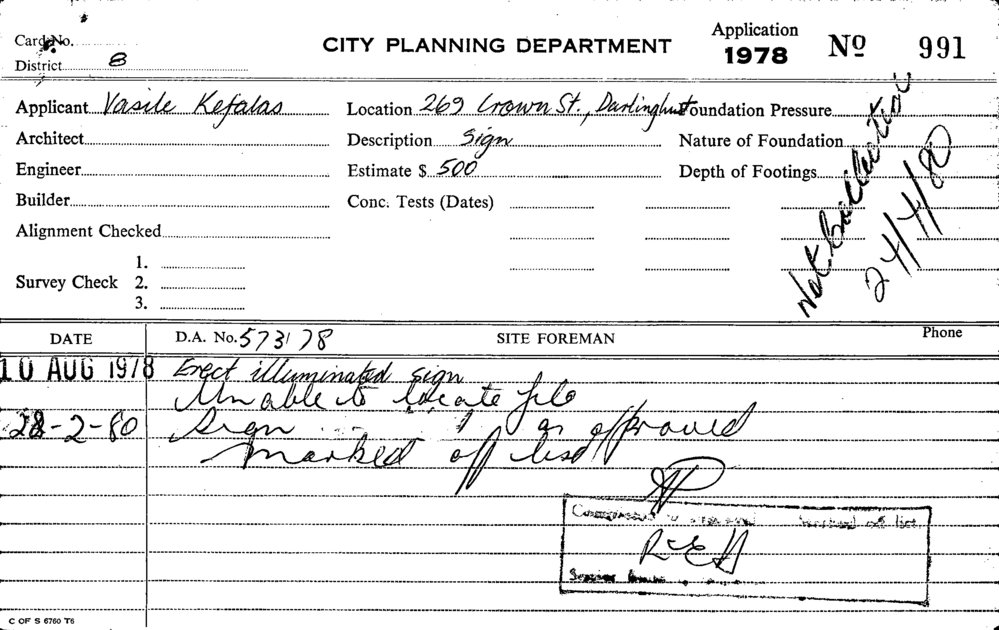 Card No.
District 8
CITY PLANNING DEPARTMENT
Application
1978
Nº 991
Applicant Vasile Kefalas
Architect
Engineer
Builder
Alignment Checked
Survey Check 1.
2.
3.
Location 269 Crown St., Darlinghurst
Description Sign
Estimate $ 500
Conc. Tests (Dates)
Foundation Pressure
Nature of Foundation
Depth of Footings
24/4/80
DATE
D.A. No. 573/78
SITE FOREMAN
Phone
10 AUG 1978 Erect illuminated sign
Unable to locate file
28-2-80 Sign as approved
marked off list
off list
C OF S 6760 T6